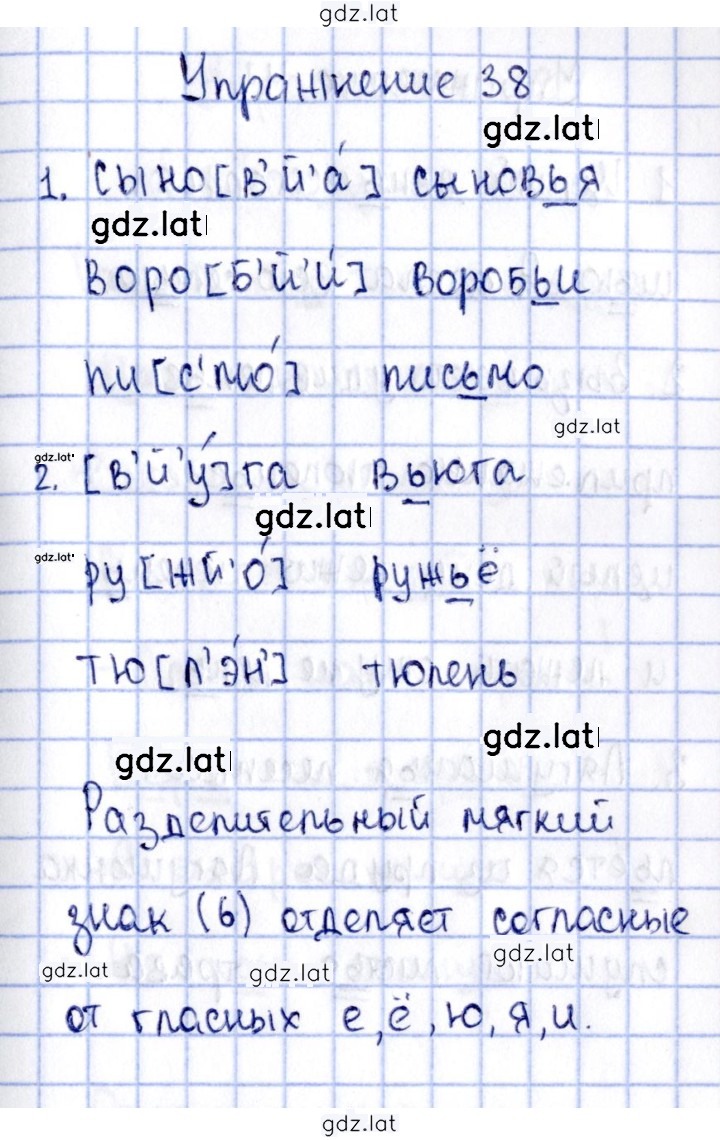 gdz.lat
Упражнение 38
gdz.lat
1. сыно[в'й'а́] сыновья
gdz.lat
воро[б'й'и́] воробьи
пи[с'мо́] письмо
gdz.lat
gdz.lat
2. [в'й'у́]га вьюга
gdz.lat
gdz.lat
ру[жй'о́] ружьё
тю[л'э́н'] тюлень
gdz.lat
gdz.lat
Разделительный мягкий
знак (ь) отделяет согласные
gdz.lat
gdz.lat
gdz.lat
от гласных е, ё, ю, я, и.
gdz.lat